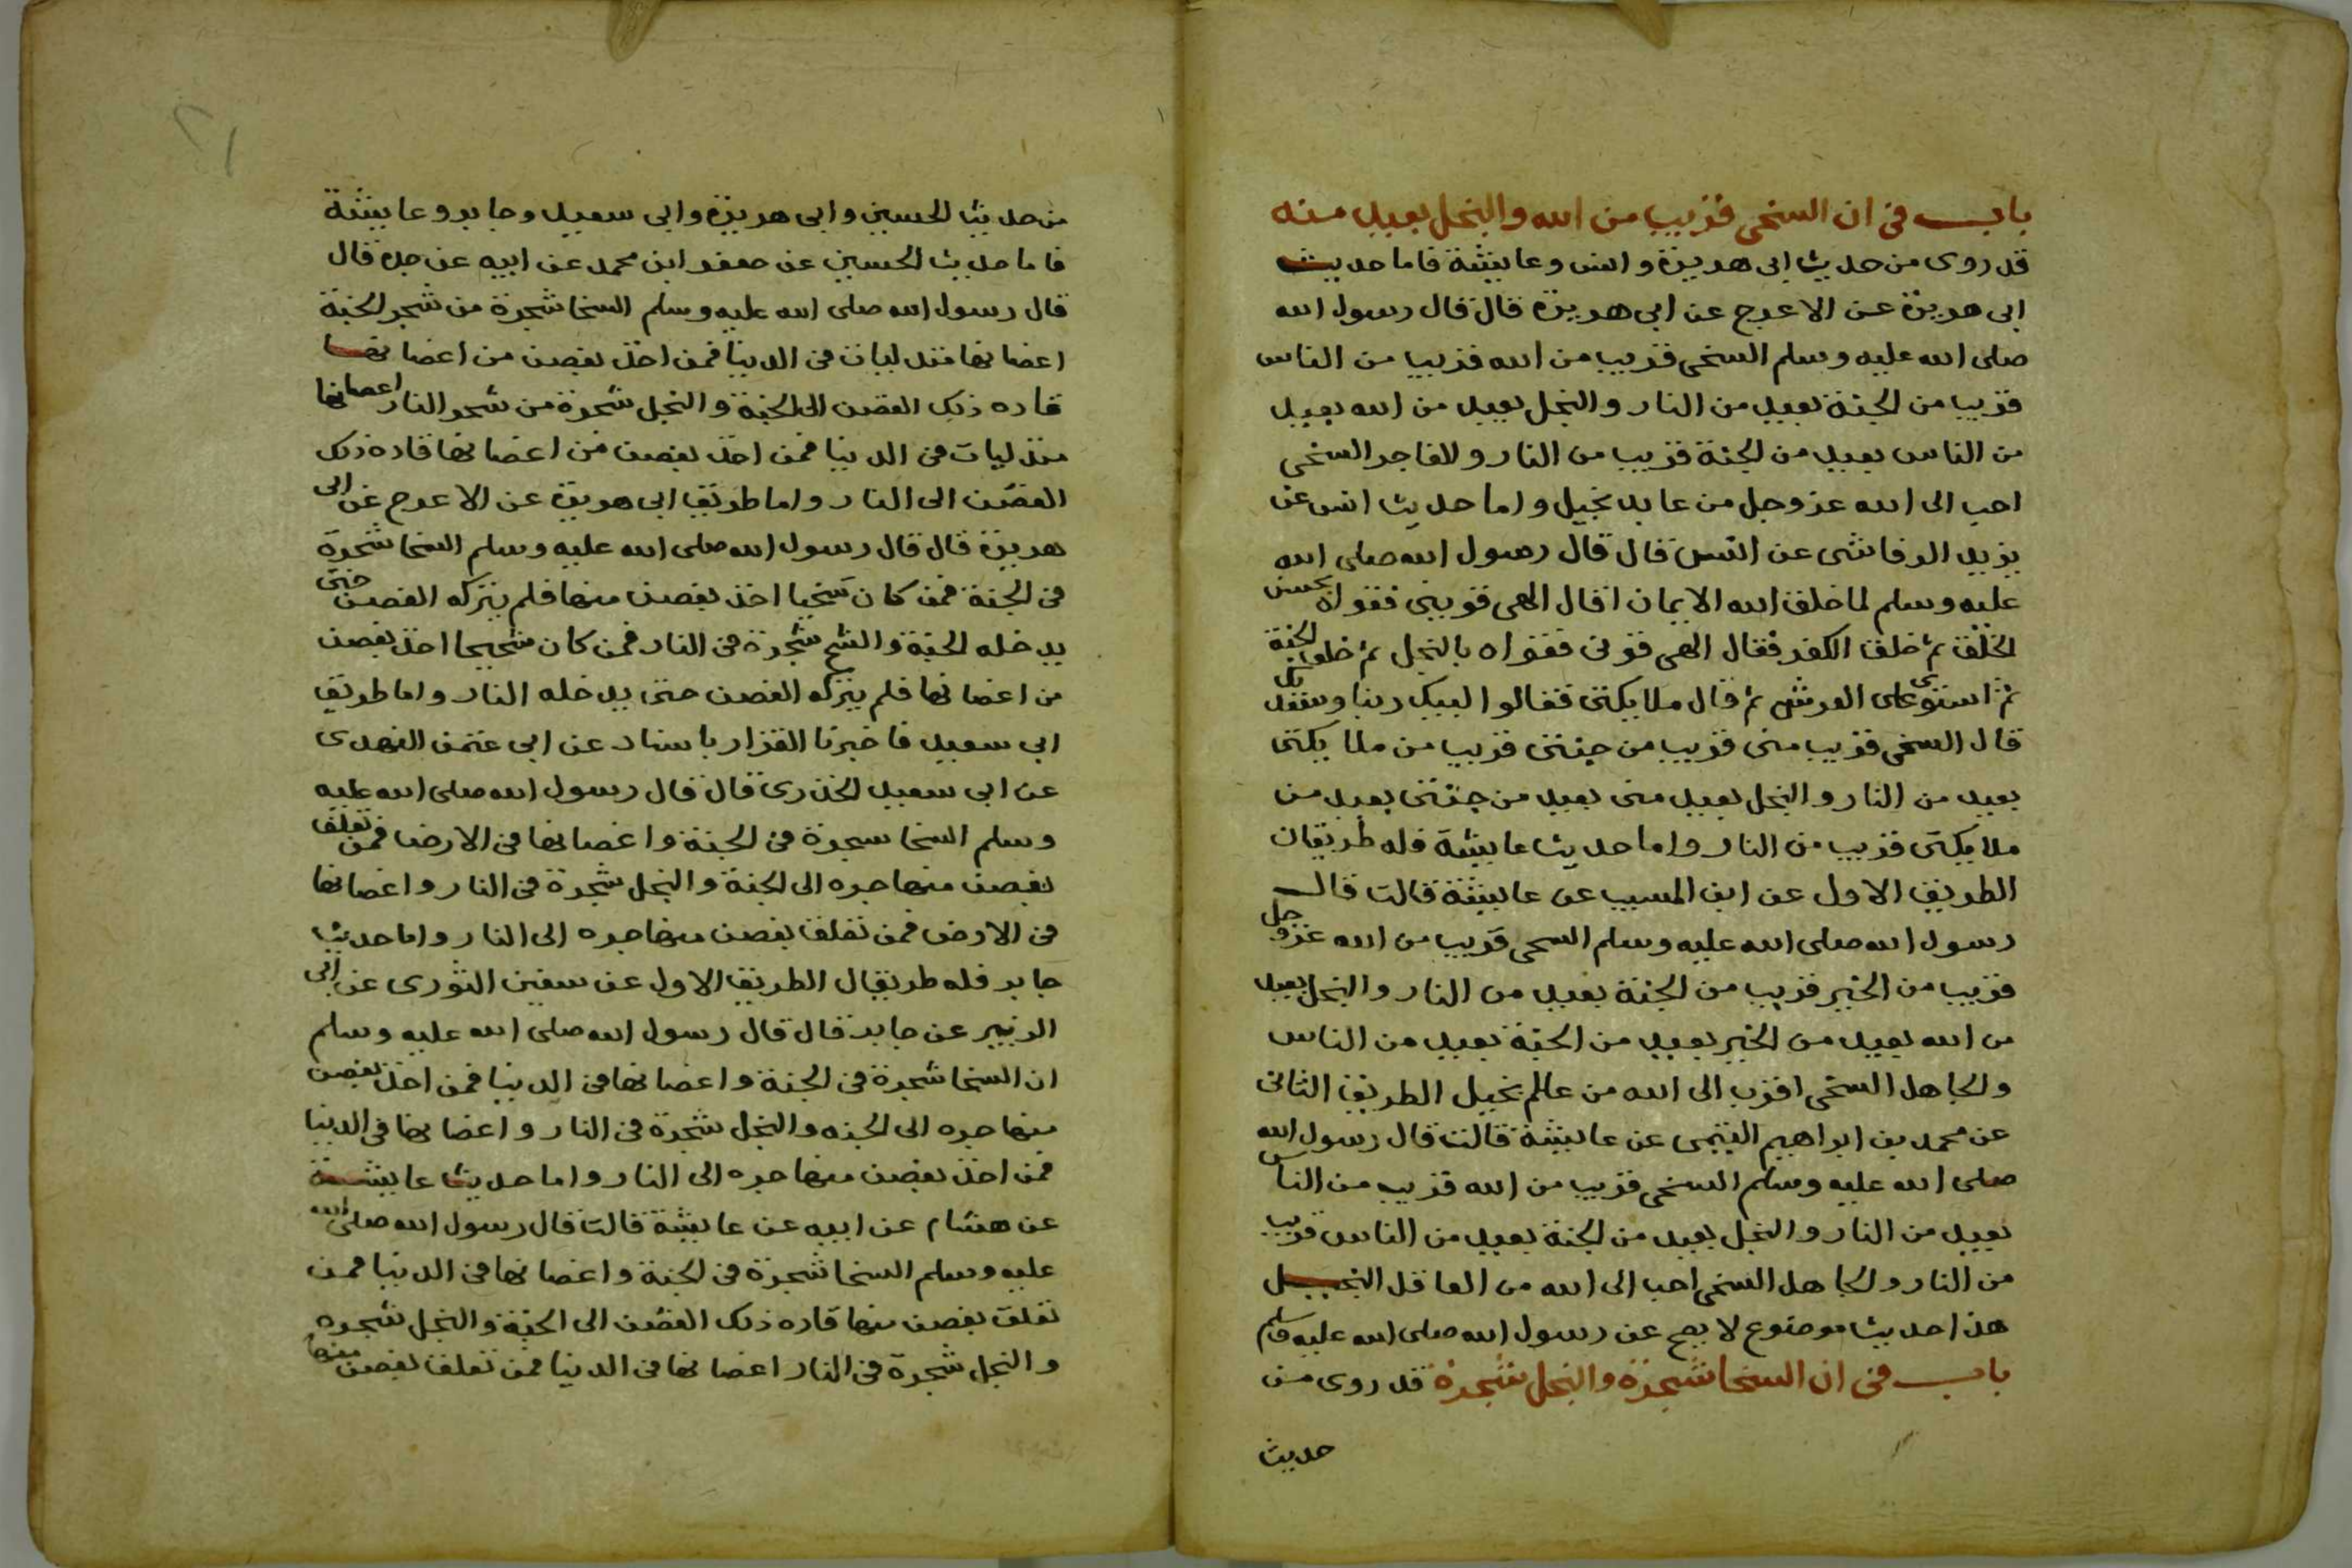 باب في ان السخي قريب من الله والبخل بعيد منه
قد روى من حديث ابى هريرة وانس وعايشة فاما حديث
ابى هريرة عن الاعرج عن ابى هريرة قال قال رسول الله
صلى الله عليه وسلم السخى قريب من الله قريب من الناس
قريب من الجنة بعيد من النار والبخل بعيد من الله بعيد
من الناس بعيد من الجنة قريب من النار ولفاجر السخى
احب الى الله عز وجل من عابد بخيل واما حديث انس عن
يزيد الرقاشى عن انس قال قال رسول الله صلى الله
عليه وسلم لما خلق الله الايمان اقال الهى قوينى فقواه بحسن
الخلق ثم خلق الكفر فقال الهى قونى فقواه بالبخل ثم خلق الجنة
ثم استوى على العرش ثم قال ملايكتى فقالوا لبيك ربنا وسعديك
قال السخى قريب منى قريب من جنتى قريب من ملايكتى
بعيد من النار والبخل بعيد منى بعيد من جنتى بعيد من
ملايكتى قريب من النار واما حديث عايشة فله طريقان
الطريق الاول عن ابن المسيب عن عايشة قالت قال
رسول الله صلى الله عليه وسلم السخى قريب من الله عز وجل
قريب من الخير قريب من الجنة بعيد من النار والبخل بعيد
من الله بعيد من الخير بعيد من الجنة بعيد من الناس
والجاهل السخى اقرب الى الله من عالم بخيل الطريق الثانى
عن محمد بن ابراهيم التيمى عن عايشة قالت قال رسول الله
صلى الله عليه وسلم السخى قريب من الله قريب من الناس
بعيد من النار والبخل بعيد من الجنة بعيد من الناس قريب
من النار والجاهل السخى احب الى الله من العاقل البخيل
هذا حديث موضوع لا يصح عن رسول الله صلى الله عليه وسلم
باب في ان السخا شجرة والبخل شجرة قد روى من
حديث
من حديث الحسين وابى هريرة وابى سعيد وجابر وعايشة
فاما حديث الحسين عن جعفر ابن محمد عن ابيه عن جده قال
قال رسول الله صلى الله عليه وسلم السخا شجرة من شجر الجنة
اغصانها متدليات فى الدنيا فمن اخذ بغصن من اغصانها
قاده ذلك الغصن الى الجنة والبخل شجرة من شجر النار اغصانها
متدليات فى الدنيا فمن اخذ بغصن من اغصانها قاده ذلك
الغصن الى النار واما طريق ابى هريرة عن الاعرج عن ابى
هريرة قال قال رسول الله صلى الله عليه وسلم السخا شجرة
فى الجنة فمن كان سخيا اخذ بغصن منها فلم يتركه الغصن حتى
يدخله الجنة والشح شجرة فى النار فمن كان شحيحا اخذ بغصن
من اغصانها فلم يتركه الغصن حتى يدخله النار واما طريق
ابى سعيد فاخبرنا القزار باسناد عن ابى عثمن النهدى
عن ابى سعيد الخذرى قال قال رسول الله صلى الله عليه
وسلم السخا سجرة فى الجنة واغصانها فى الارض فمن تعلق
بغصن منها جره الى الجنة والبخل شجرة فى النار واغصانها
فى الارض فمن تعلق بغصن منها جره الى النار واما حديث
جابر فله طريقال الطريق الاول عن سفين الثورى عن ابى
الزبير عن جابر قال قال رسول الله صلى الله عليه وسلم
ان السخا شجرة فى الجنة واغصانها فى الدنيا فمن اخذ بغصن
منها جره الى الجنه والبخل شجرة فى النار واغصانها فى الدنيا
فمن اخذ بغصن منها جره الى النار واما حديث عايشة
عن هشام عن ابيه عن عايشة قالت قال رسول الله صلى الله
عليه وسلم السخا شجرة فى الجنة واغصانها فى الدنيا فمن
تعلق بغصن منها قاده ذلك الغصن الى الجنة والبخل شجره
والبخل شجرة فى النار اغصانها فى الدنيا فمن تعلق بغصن منها